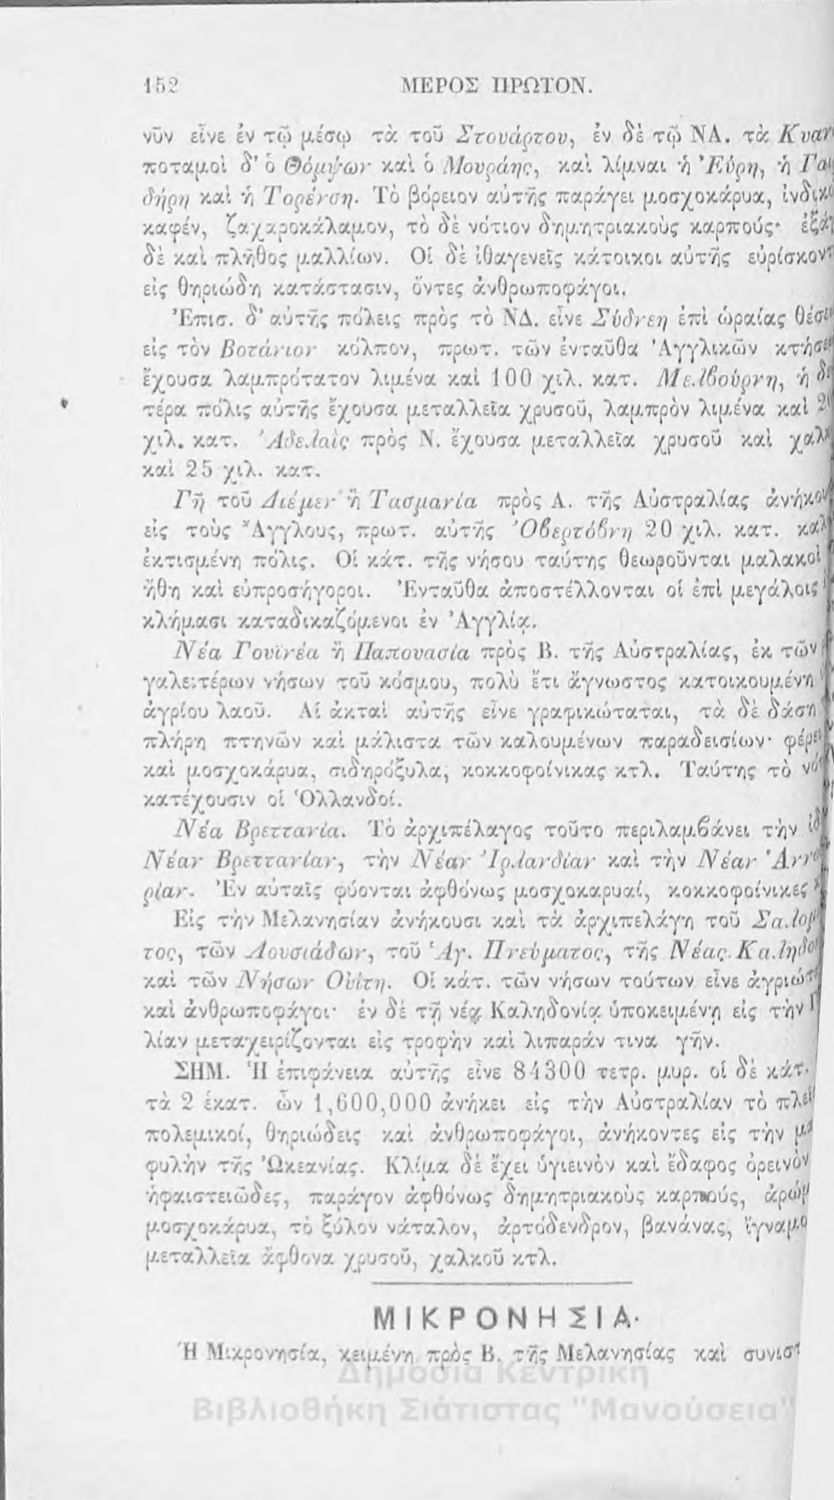 152 ΜΕΡΟΣ ΠΡΩΤΟΝ.
νῦν εἶνε ἐν τῷ μέσῳ τὰ τοῦ Στουάρτου, ἐν δὲ τῷ ΝΑ. τὰ
ποταμοὶ δ' ὁ Θόμψων καὶ ὁ Μουράης, καὶ λίμναι ἡ Ἐύρη, ἡ
δήρη καὶ ἡ Τορένση. Τὸ βόρειον αὐτῆς παράγει μοσχοκάρυα,
καφέν, ζαχαροκάλαμον, τὸ δὲ νότιον δημητριακοὺς καρπούς·
δὲ καὶ πλῆθος μαλλίων. Οἱ δὲ ἰθαγενεῖς κάτοικοι αὐτῆς
εἰς θηριώδη κατάστασιν, ὄντες ἀνθρωποφάγοι.
Ἐπισ. δ' αὐτῆς πόλεις πρὸς τὸ ΝΔ. εἶνε Σύδνεη ἐπὶ ὡραίας
εἰς τὸν Βοτάνιον κόλπον, πρωτ. τῶν ἐνταῦθα Ἀγγλικῶν
ἔχουσα λαμπρότατον λιμένα καὶ 100 χιλ. κατ. Μελβούρνη, ἡ
τέρα πόλις αὐτῆς ἔχουσα μεταλλεῖα χρυσοῦ, λαμπρὸν λιμένα καὶ
χιλ. κατ. Ἀδελαὶς πρὸς Ν. ἔχουσα μεταλλεῖα χρυσοῦ καὶ
καὶ 25 χιλ. κατ.
Γῆ τοῦ Διέμεν ἢ Τασμανία πρὸς Α. τῆς Αὐστραλίας
εἰς τοὺς Ἄγγλους, πρωτ. αὐτῆς Ὀβερτόβνη 20 χιλ. κατ.
ἐκτισμένη πόλις. Οἱ κάτ. τῆς νήσου ταύτης θεωροῦνται μαλακοὶ
ἤθη καὶ εὐπροσήγοροι. Ἐνταῦθα ἀποστέλλονται οἱ ἐπὶ μεγάλοις
κλήμασι καταδικαζόμενοι ἐν Ἀγγλίᾳ.
Νέα Γουϊνέα ἢ Παπουασία πρὸς Β. τῆς Αὐστραλίας, ἐκ τῶν
γαλειτέρων νήσων τοῦ κόσμου, πολὺ ἔτι ἄγνωστος κατοικουμένη
ἀγρίου λαοῦ. Αἱ ἀκταὶ αὐτῆς εἶνε γραφικώταται, τὰ δὲ δάση
πλήρη πτηνῶν καὶ μάλιστα τῶν καλουμένων παραδεισίων·
καὶ μοσχοκάρυα, σιδηρόξυλα, κοκκοφοίνικας κτλ. Ταύτης τὸ
κατέχουσιν οἱ Ὁλλανδοί.
Νέα Βρεττανία. Τὸ ἀρχιπέλαγος τοῦτο περιλαμβάνει τὴν
Νέαν Βρεττανίαν, τὴν Νέαν Ἰρλανδίαν καὶ τὴν Νέαν
ρίαν. Ἐν αὐταῖς φύονται ἀφθόνως μοσχοκαρυαί, κοκκοφοίνικες
Εἰς τὴν Μελανησίαν ἀνήκουσι καὶ τὰ ἀρχιπελάγη τοῦ
τος, τῶν Λουσιάδων, τοῦ Ἁγ. Πνεύματος, τῆς Νέας
καὶ τῶν Νήσων Οὐίτη. Οἱ κάτ. τῶν νήσων τούτων εἶνε
καὶ ἀνθρωποφάγοι· ἐν δὲ τῇ νέᾳ Καληδονίᾳ ὑποκειμένῃ εἰς τὴν
λίαν μεταχειρίζονται εἰς τροφὴν καὶ λιπαράν τινα γῆν.
ΣΗΜ. Ἡ ἐπιφάνεια αὐτῆς εἶνε 84300 τετρ. μυρ. οἱ δὲ κάτ.
τὰ 2 ἑκατ. ὧν 1,600,000 ἀνήκει εἰς τὴν Αὐστραλίαν τὸ
πολεμικοί, θηριώδεις καὶ ἀνθρωποφάγοι, ἀνήκοντες εἰς τὴν
φυλὴν τῆς Ὠκεανίας. Κλίμα δὲ ἔχει ὑγιεινὸν καὶ ἔδαφος ὀρεινὸν
ἡφαιστειῶδες, παράγον ἀφθόνως δημητριακοὺς καρπούς,
μοσχοκάρυα, τὸ ξύλον νάταλον, ἀρτόδενδρον, βανάνας,
μεταλλεῖα ἄφθονα χρυσοῦ, χαλκοῦ κτλ.
ΜΙΚΡΟΝΗΣΙΑ·
Ἡ Μικρονησία, κειμένη πρὸς Β. τῆς Μελανησίας καὶ
Δημόσια Κεντρική
Βιβλιοθήκη Σιάτιστας "Μανούσεια"